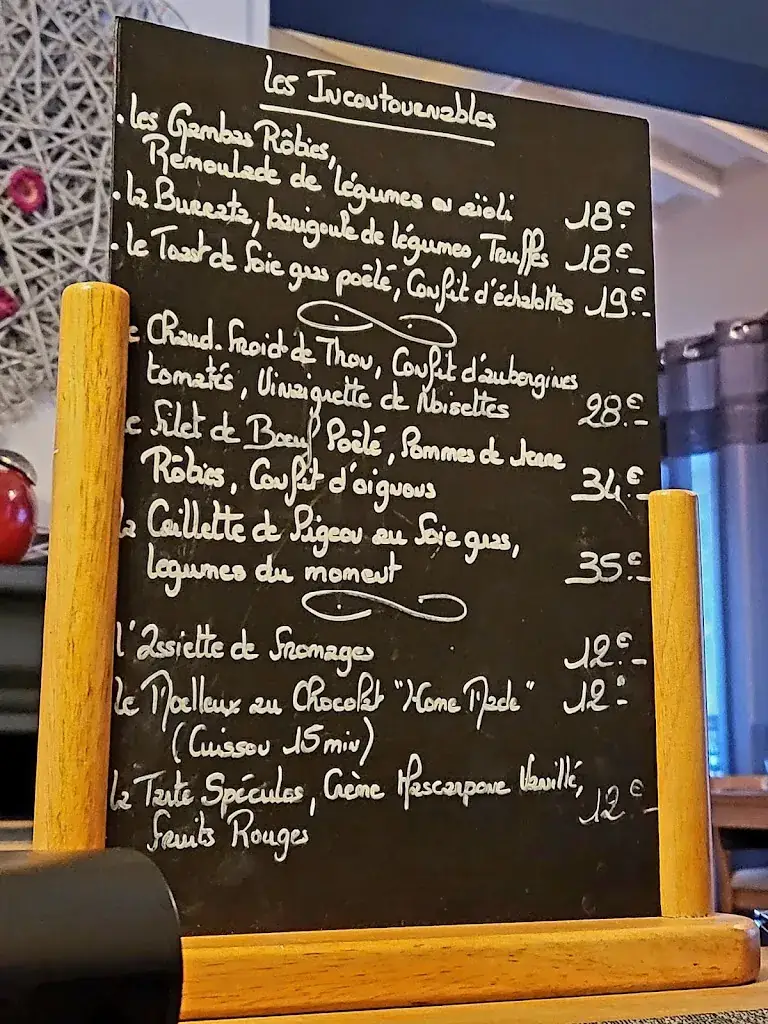 Les Incontournables
. Les Gambas Rôties,
Remoulade de légumes au aïoli 18€
. la Burrata, barigoule de légumes, Truffes 18€-
. le Toast de foie gras poêlé, Confit d'échalottes 19€-
e Chaud-froid de Thon, Confit d'aubergines
tomatés, Vinaigrette de Noisettes 28€-
e filet de Boeuf Poêlé, Pommes de terre
Rôties, Confit d'oignons 34€-
la Caillette de Pigeon au foie gras,
legumes du moment 35€-
l'Assiette de fromages 12€-
Le Moelleux au Chocolat "Home Made" 12€-
(Cuisson 15 min)
la Tarte Spéculos, Crème Mascarpone Vanillé,
fruits Rouges 12€-